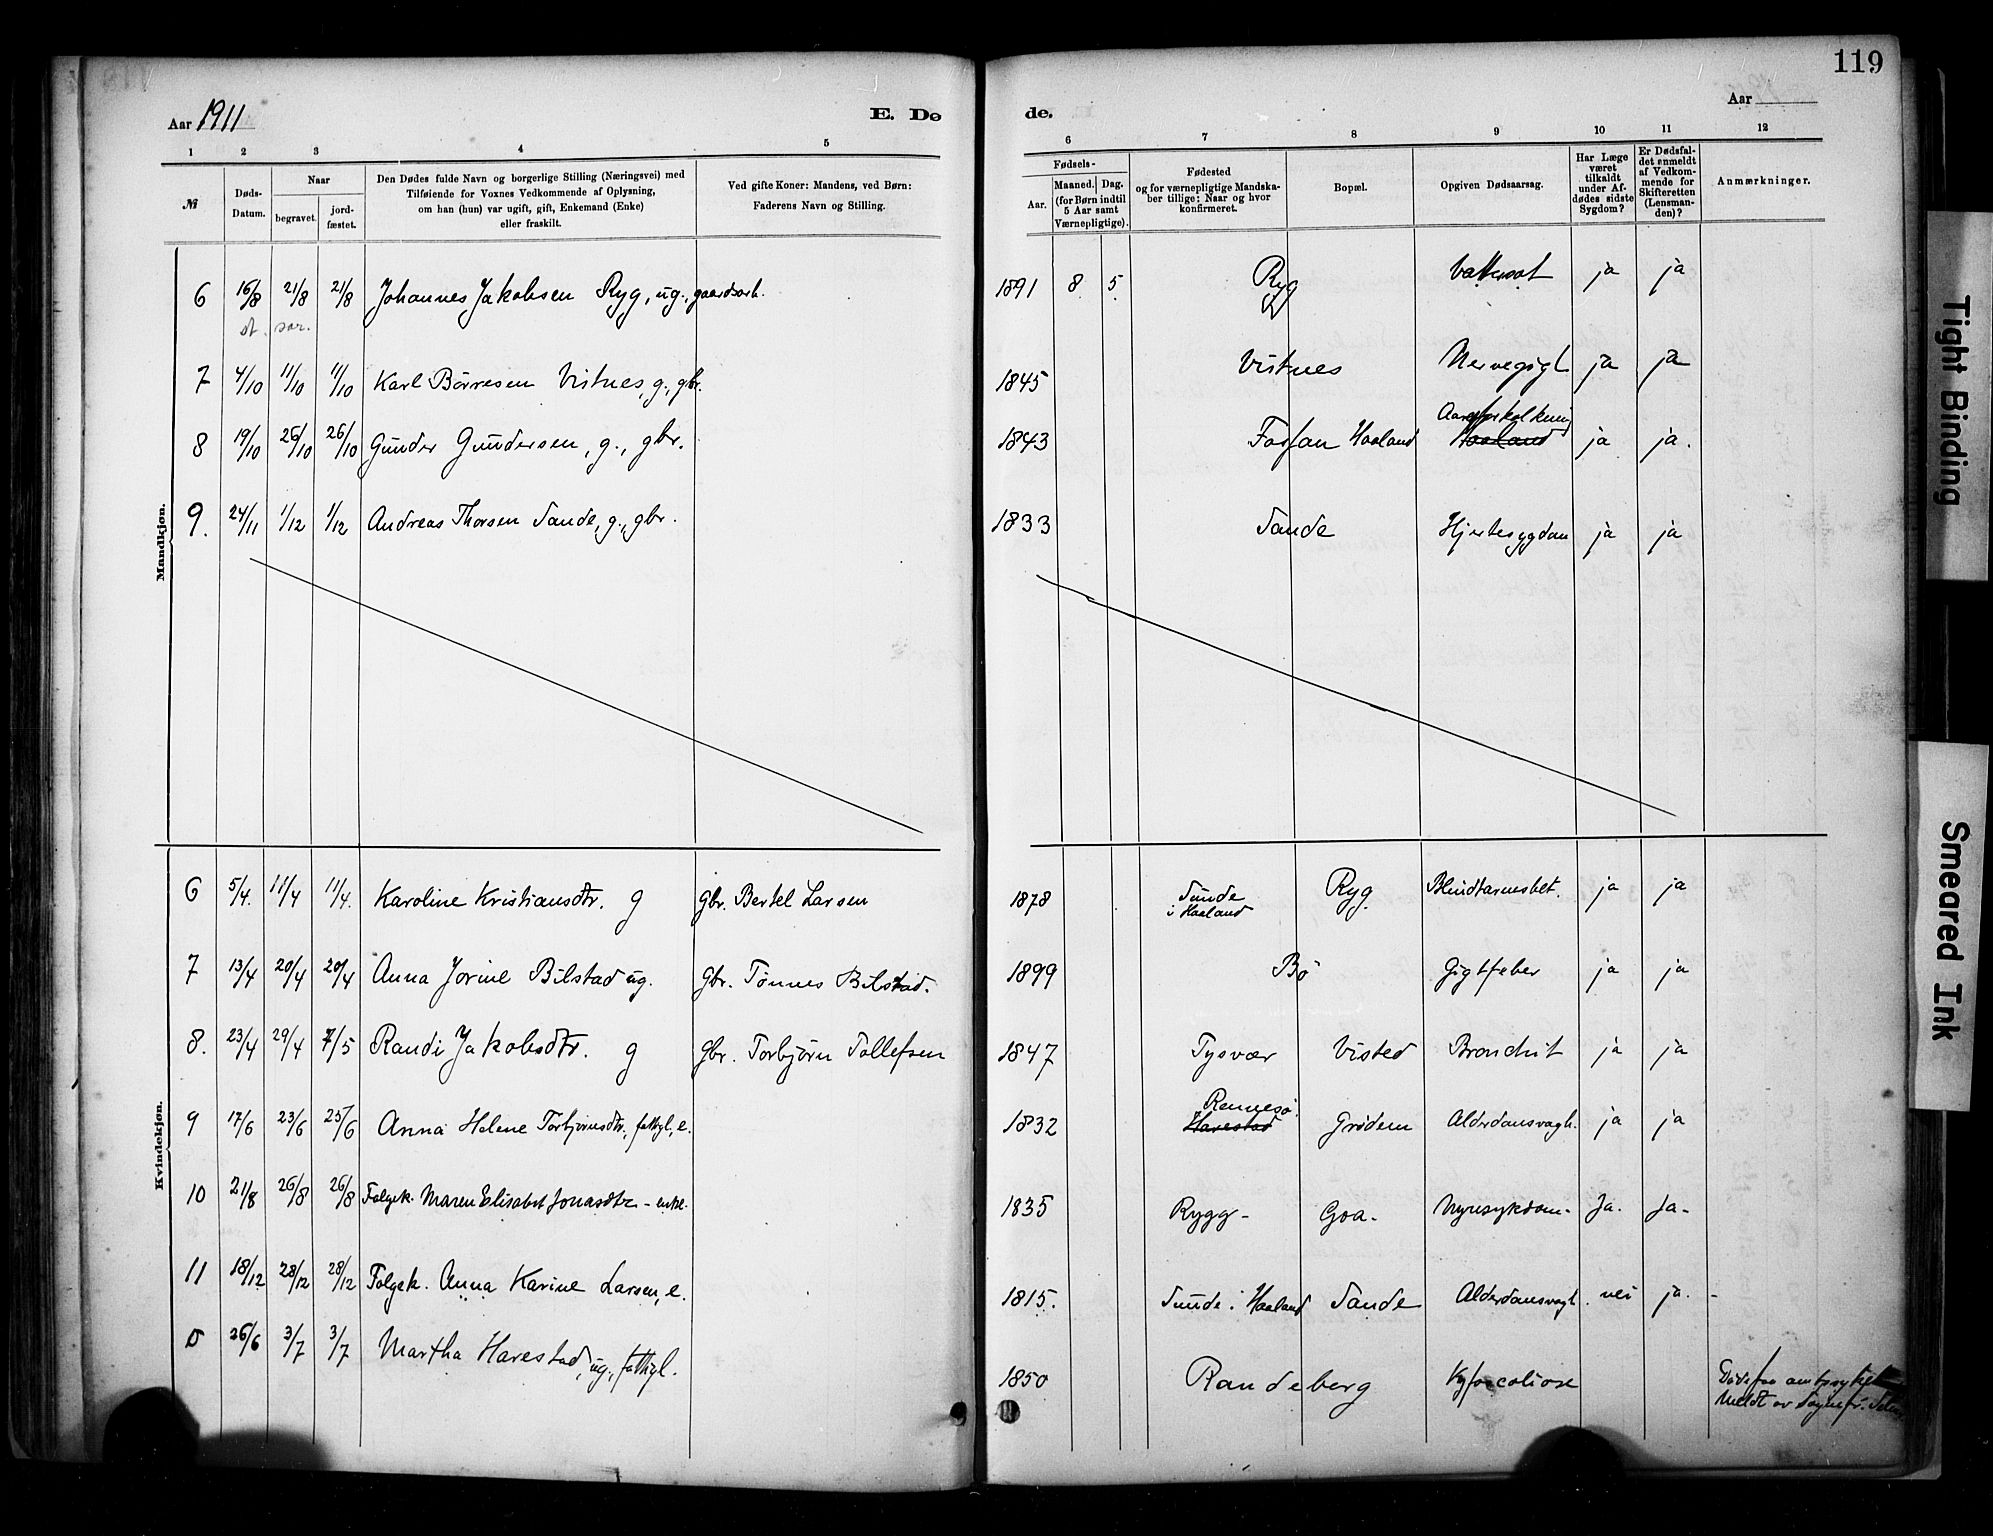 119
Aar 1911
E. Dø
de.
Aar
1 2 3 4 5
6 7 8 9 10 11 12
№
Døds-
Datum.
Naar
begravet.
jord-
fæstet.
Den Dødes fulde Navn og borgerlige Stilling (Næringsvei) med
Tilføiende for Voxnes Vedkommende af Oplysning,
om han (hun) var ugift, gift, Enkemand (Enke)
eller fraskilt.
Ved gifte Koner: Mandens, ved Børn:
Faderens Navn og Stilling.
Fødsels-
Aar.
Maaned. Dag.
(for Børn indtil
5 Aar samt
Værnepligtige).
Fødested
og for værnepligtige Mandska-
ber tillige: Naar og hvor
konfirmeret.
Bopæl.
Opgiven Dødsaarsag.
Har Læge
været
tilkaldt
under Af-
dødes sidste
Sygdom?
Er Dødsfal-
det anmeldt
af Vedkom-
mende for
Skifteretten
(Lensman-
den)?
Anmærkninger.
Mandkjøn.
6 16/8 21/8 21/8 Johannes Jakobsen Ryg, ug., gaardsarb. 1891 8 5 Ryg Vattersot ja ja
7 4/10 11/10 11/10 Karl Børresen Vistnes, g., gbr. 1845 Vistnes Nervegigt ja ja
8 19/10 26/10 26/10 Gunder Gundersen, g., gbr. 1843 Fosfan Haaland Aareforkalkning Haaland ja ja.
9. 24/11 1/12 1/12 Andreas Thorsen Sande, g., gbr. 1833 Sande Hjertesygdom ja ja
Kvindekjøn.
6 5/4. 11/4 11/4. Karoline Kristiansdtr. g gbr. Bertel Larsen 1878 Sunde i Haaland Ryg Blindtarmsbet. ja ja
7 13/4 20/4 20/4 Anna Jorine Bilstad ug. gbr. Tønnes Bilstad. 1899 Bø Gigtfeber ja ja
8. 23/4 29/4 7/5 Randi Jakobsdtr. g gbr. Torbjørn Tollefsen 1847 Tysvær Visted Bronchit ja ja
9 17/6 23/6 25/6 Anna Helene Torbjørnsdtr., fattigl., e. 1832 Rennesø. Harestad Grødem Alderdomsvagh. ja ja
10 21/8 26/8 26/8 Folgek. Maren Elisabet Jonasdtr – enke. 1835 Rygg- Goa. Nyresykdom- Ja. Ja-
11 18/12 28/12 28/12 Folgek. Anna Karine Larsen, e. 1815. Sunde i Haaland Sande Alderdomsvagh. nei ja. -
0 26/6 3/7 3/7 Martha Harestad, ug., fattigl. 1850 Randeberg Kyfoscoliose
Meldt av Sognepr.
Tight Binding
Smeared Ink